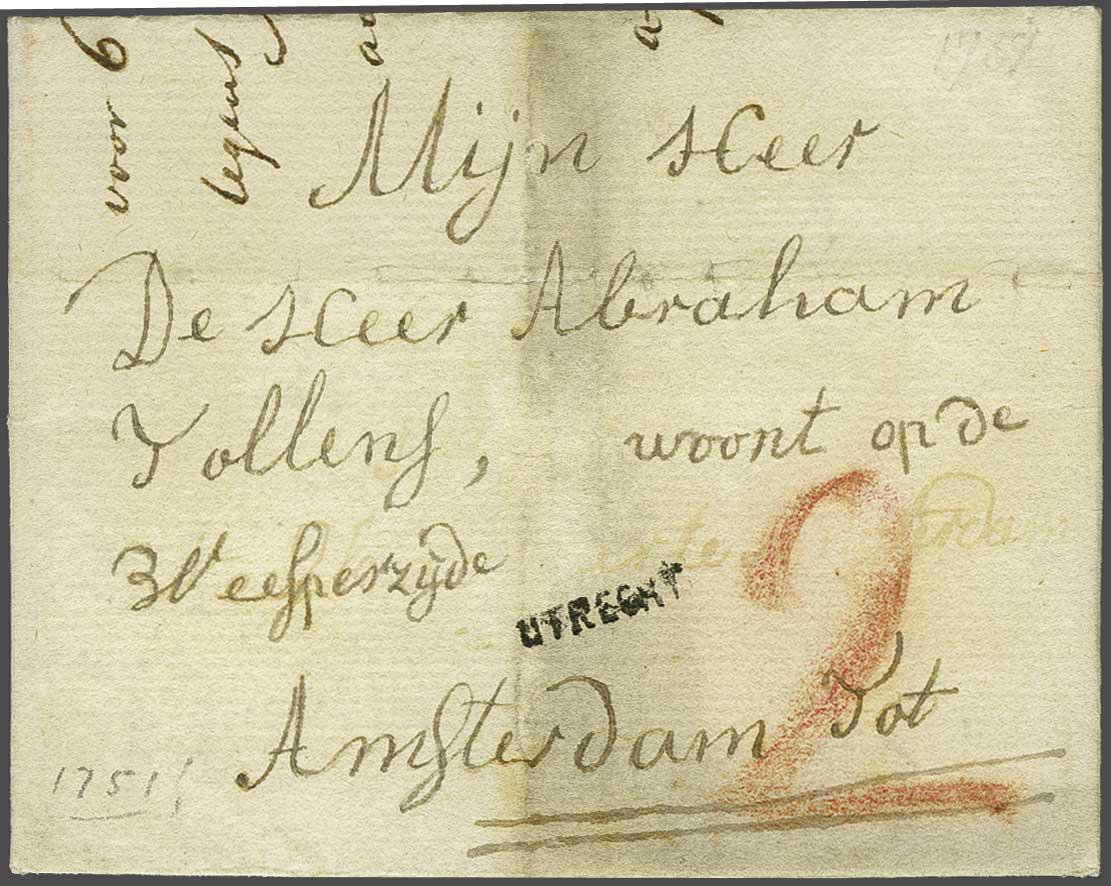 voor 6
tegens
1751
Mijn Heer
De Heer Abraham
Tollens, woont op de
Weesperzijde
UTRECHT
2
Amsterdam Tot
1751